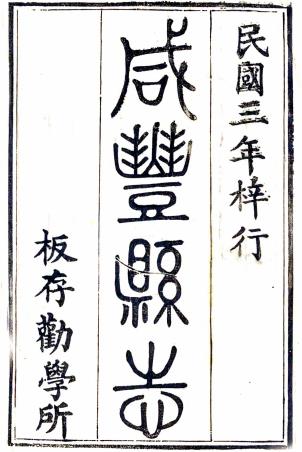 民國三年梓行
咸豐縣志
板存勸學所